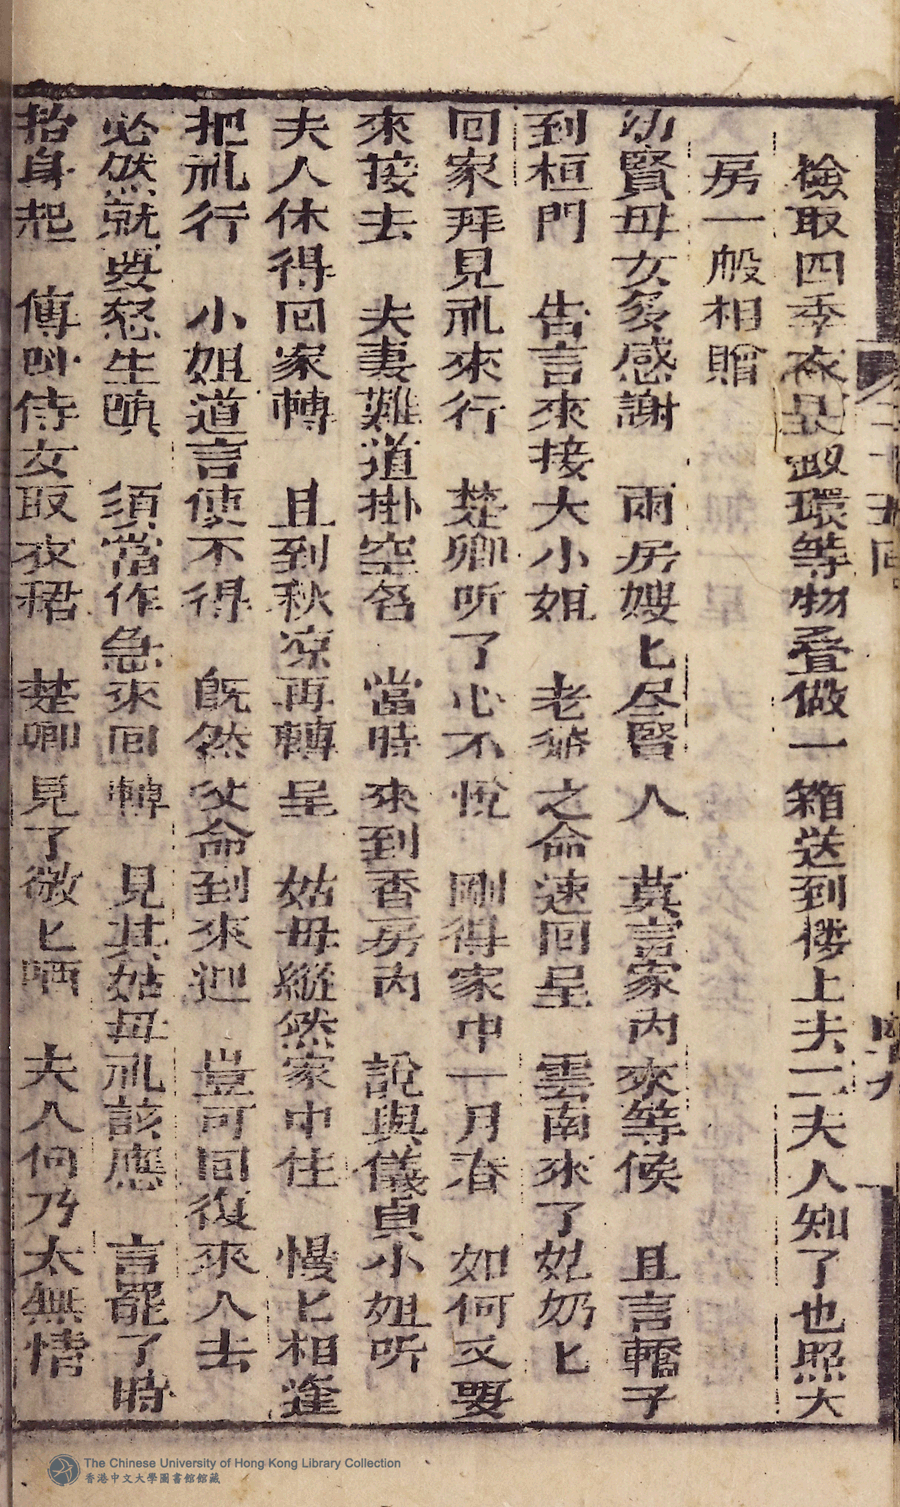 二十五回 四十九
檢取四季衣呈釵環等物叠做一箱送到楼上夫二夫人知了也照大
房一般相贈
幼賢母女多感謝　兩房嫂匕尽賢人　莫言家內來等候　且言轎子
到桓門　告言來接大小姐　老爺之命速回呈　雲南來了妣奶匕
回家拜見礼來行　楚卿听了心不悅　剛得家中一月春　如何又要
來接去　夫妻難道掛空名　當時來到香房內　說與儀貞小姐听
夫人休得回家轉　且到秋凉再轉呈　姑母縱然家中住　慢匕相逢
把礼行　小姐道言使不得　既然父命到來迎　豈可回復來人去
必然就要怒生嗔　須當作急來回轉　見其姑母礼該應　言罷了時
抬身起　傳呌侍女取衣裙　楚卿見了微匕哂　夫人何乃太無情
The Chinese University of Hong Kong Library Collection
香港中文大學圖書館館藏